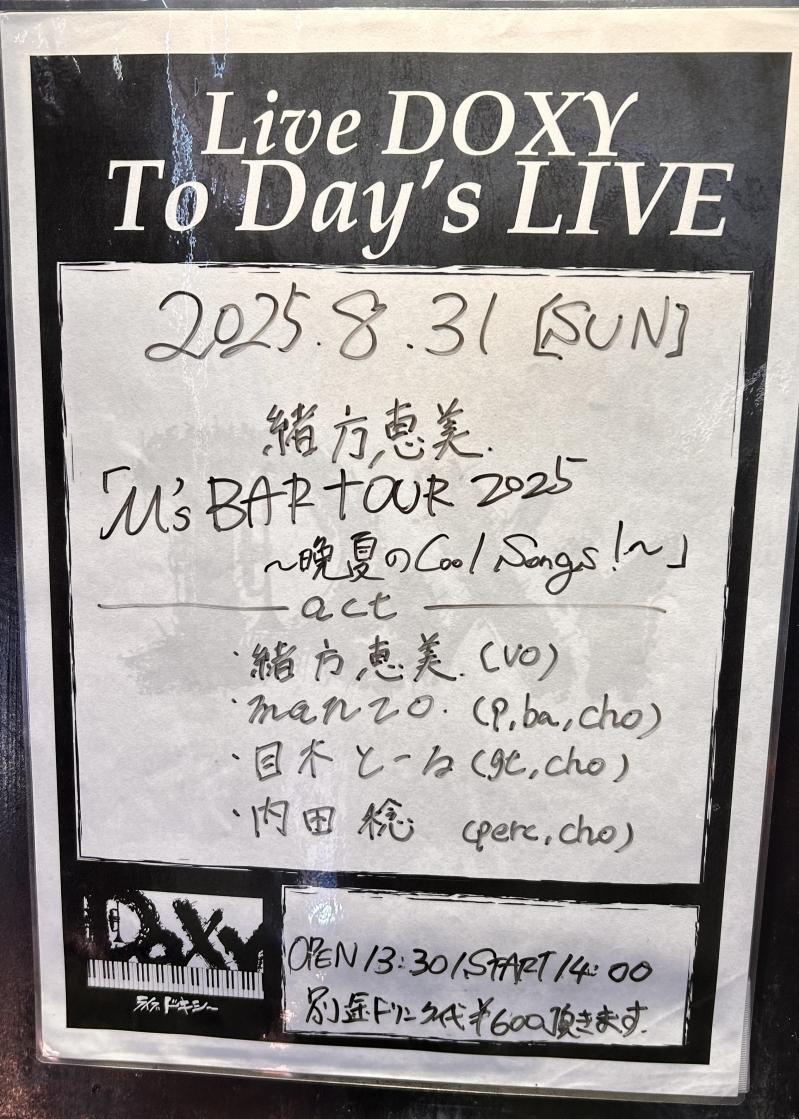 Live DOXY
To Day's LIVE
2025.8.31 [SUN]
緒方恵美.
「M's BAR TOUR 2025
~晩夏のCool Songs!~」
act
・緒方恵美.(vo)
・manzo.(p,ba,cho)
・目木とーる(gt,cho)
・内田稔(perc,cho)
DOXY
ライブドキシー
OPEN 13:30/START 14:00
別途ドリンク代¥600頂きます.